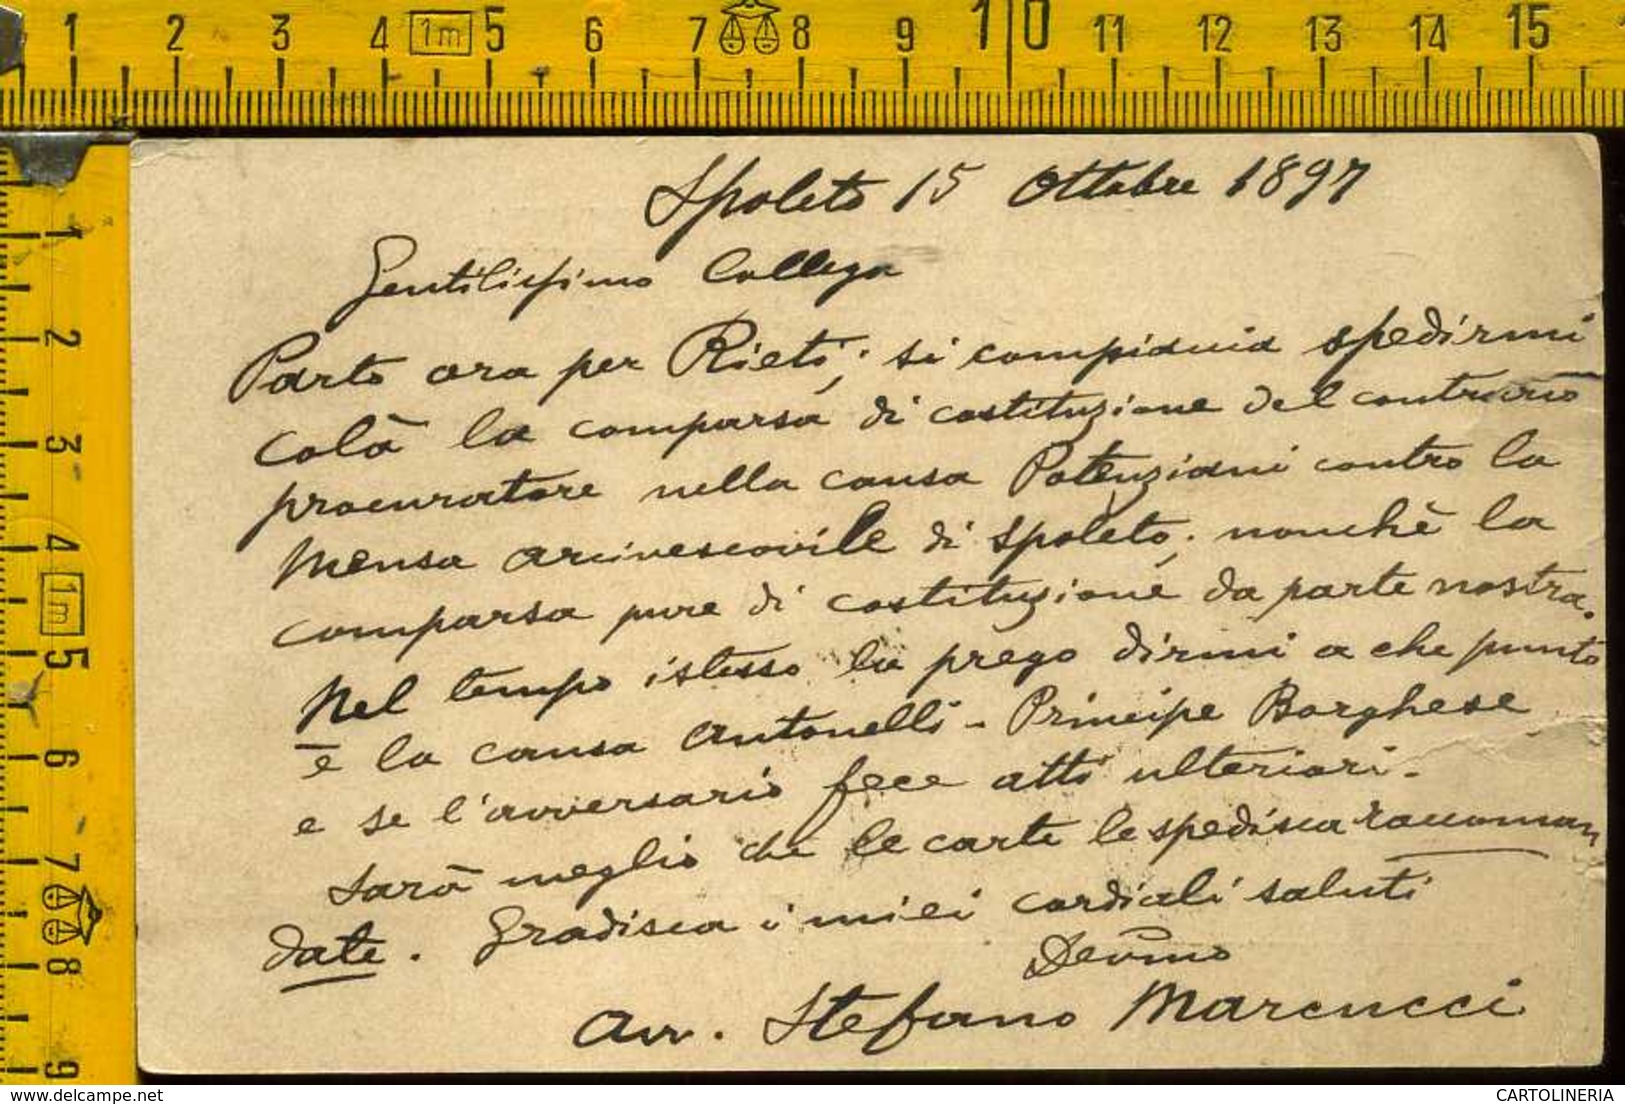 1 2 3 4 1m 5 6 7 8 9 10 11 12 13 14 15
1 2 3 4 1m 5 6 7 8 9
Spoleto 15 Ottobre 1897
Gentilissimo Collega
Parto ora per Rieti; si compiaccia spedirmi
colà la comparsa di costituzione del contrario
procuratore nella causa Potenziani contro la
Mensa arcivescovile di Spoleto, nonchè la
comparsa pure di costituzione da parte nostra.
Nel tempo istesso la prego dirmi a che punto
è la causa Antonelli - Principe Borghese
e se l'avversario fece atti ulteriori.
Sarà meglio che le carte le spedisca raccoman
date. Gradisca i miei cordiali saluti
Devmo
Avv. Stefano Marcucci
delcampe.net
CARTOLINERIA